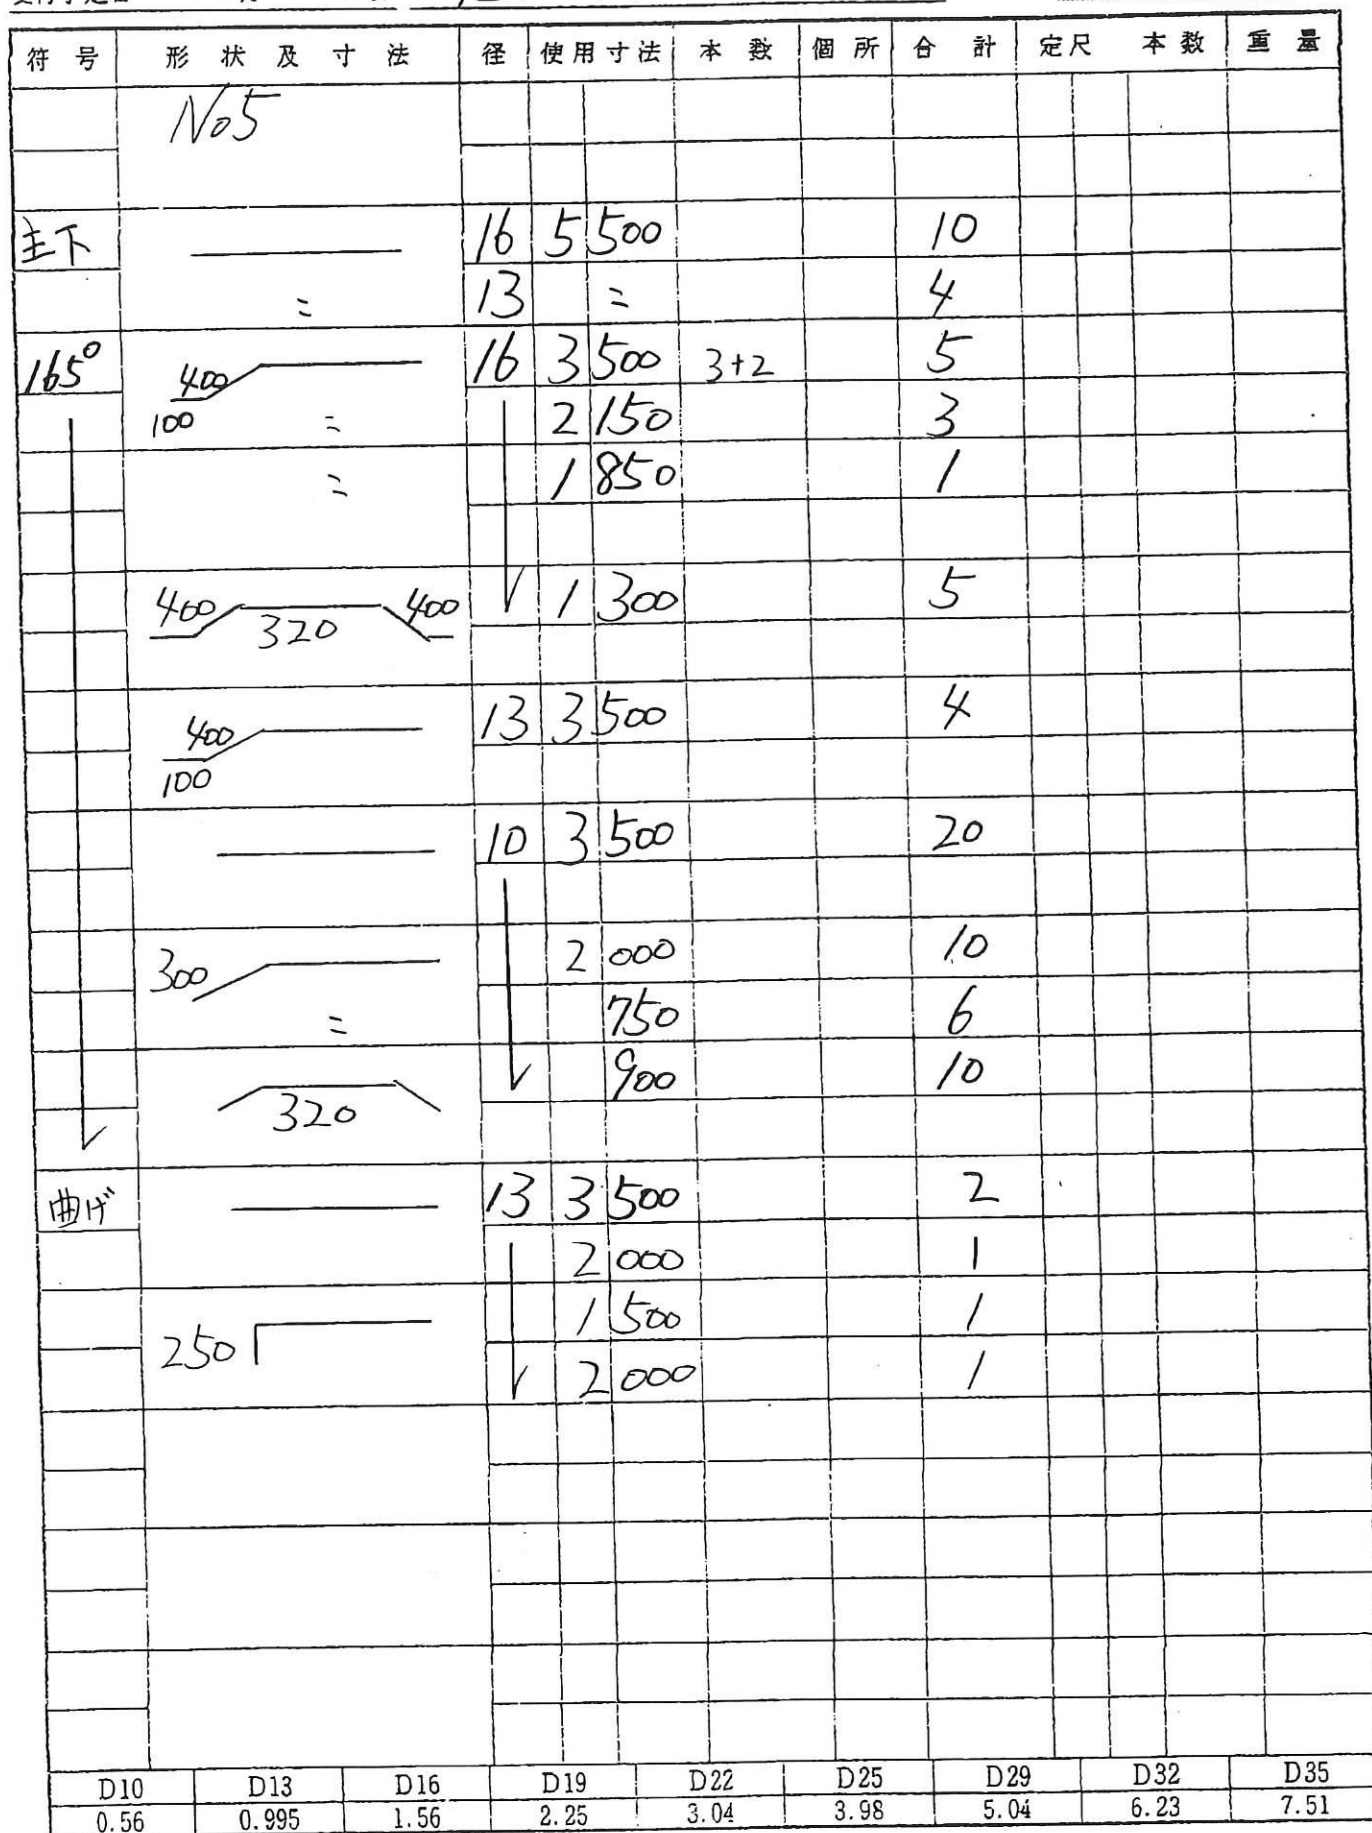 符号 形状及寸法 径 使用寸法 本数 個所 合計 定尺 本数 重量
No5
主下 16 5 500 10
〃 13 〃 4
165° 400 100 16 3 500 3+2 5
〃 2 150 3
〃 1 850 1
400 320 400 1 300 5
400 100 13 3 500 4
10 3 500 20
300 2 000 10
〃 750 6
320 900 10
曲げ 13 3 500 2
2 000 1
250 1 500 1
2 000 1
D10 D13 D16 D19 D22 D25 D29 D32 D35
0.56 0.995 1.56 2.25 3.04 3.98 5.04 6.23 7.51